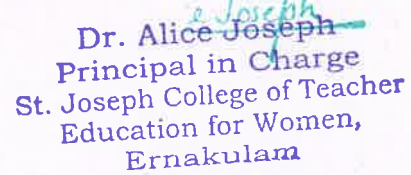 e Joseph
Dr. Alice Joseph
Principal in Charge
St. Joseph College of Teacher
Education for Women,
Ernakulam